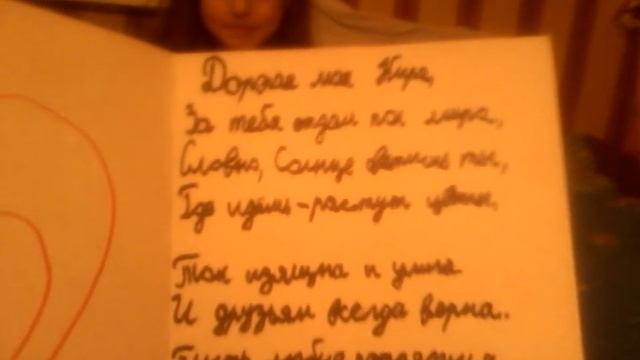 Дорогая моя Кира,
За тебя отдам пол мира,
Словно, Солнце светишь ты,
Где идёшь-растут цветы,
Так изящна и умна
И друзьям всегда верна..
Пусть любые